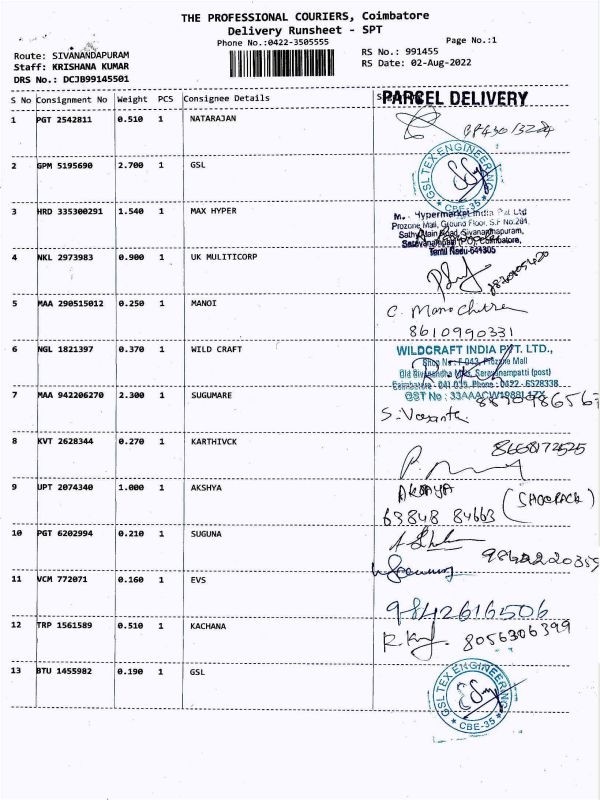 THE PROFESSIONAL COURIERS, Coimbatore
Delivery Runsheet - SPT
Phone No.:0422-3505555
Page No.:1
Route: SIVANANDAPURAM
RS No.: 991455
Staff: KRISHANA KUMAR
RS Date: 02-Aug-2022
DRS No.: DCJB99145501
S No Consignment No Weight PCS Consignee Details
PARCEL DELIVERY
1 PGT 2542811 0.510 1 NATARAJAN
2 GPM 5195690 2.700 1 GSL
GSL TEX ENGINEERING
* CBE-35 *
3 HRD 335300291 1.540 1 MAX HYPER
Hypermarket India Pvt Ltd
Prozone Mall, Ground Floor, S.F No.264,
Sathy Main Road, Sivanandhapuram,
Saravanampatti (P.O), Coimbatore,
Tamil Nadu-641035
4 NKL 2973983 0.900 1 UK MULITICORP
5 MAA 290515012 0.250 1 MANOI
C. Manochitra
8610990331
6 NGL 1821397 0.370 1 WILD CRAFT
WILDCRAFT INDIA PVT. LTD.,
Prozone Mall
Saravanampatti (post)
Coimbatore - 641 035. Phone : 0422 - 6528338
GST No : 33AAACW1988L1ZX
7 MAA 942206270 2.300 1 SUGUMARE
S. Vasantha
8 KVT 2628344 0.270 1 KARTHIVCK
8668172525
9 UPT 2074340 1.000 1 AKSHYA
AKSAYA
63848 84663
(SHOERACK)
10 PGT 6202994 0.210 1 SUGUNA
11 VCM 772071 0.160 1 EVS
9842616506
12 TRP 1561589 0.510 1 KACHANA
8056306399
13 BTU 1455982 0.190 1 GSL
GSL TEX ENGINEERING
* CBE-35 *